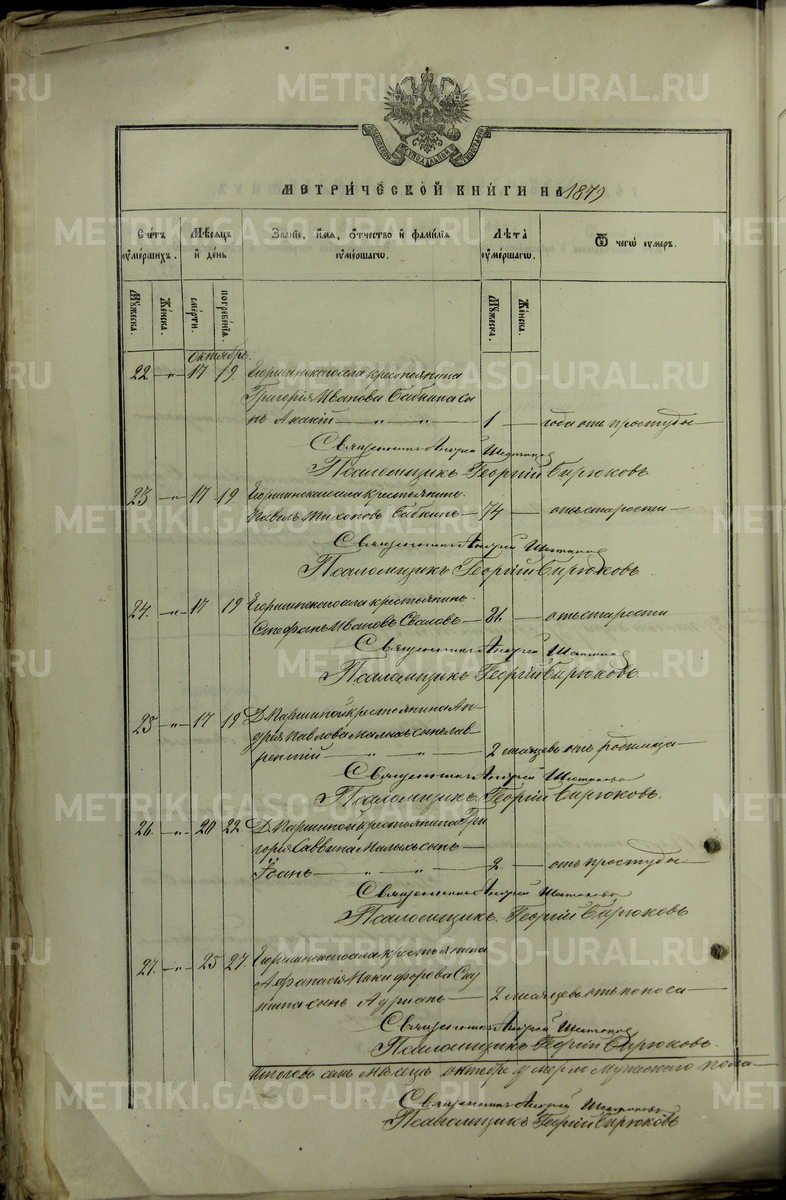 МЕТРИ́ЧЕСКОЙ КНИ́ГИ НА 1879
Счетъ ᲂумершихъ.
Мѣсяцъ и день
Званіе, имя, ѻтчество и фамилія ᲂумершагѡ.
Лѣта ᲂумершагѡ.
Ѿ чегѡ ᲂумеръ.
Мужеска.
Женска.
смерти.
погребенія.
Мужеска.
Женска.
Октябрь.
22 — „ — 17 19 Егоршинскаго села крестьянина
Григорія Иванова Бабкина сы
нъ Акакій — „ — „ — 1 — года отъ простуды —
Священникъ Андрей
Псаломщикъ Георгій Бирюковъ
23 — „ — 17 19. Егоршинскаго села крестьянинъ
Павелъ Бабкинъ — 74 — отъ старости —
Священникъ Андрей
Псаломщикъ Георгій Бирюковъ.
24. — „ — 17 19 Егоршинскаго села крестьянинъ
Стефанъ Ивановъ — 81. — отъ старости
Священникъ Андрей
Псаломщикъ Георгій Бирюковъ.
25 — „ — 17 19 Д. Паршиной крестьянина Ан-
дрея Павлова Малыхъ сынъ Лав-
рентій — „ — „ — 2 мѣсяцевъ отъ родимца —
Священникъ Андрей
Псаломщикъ Георгій Бирюковъ.
26. — „ — 20 22. Д. Паршиной крестьянина Гри
горія Саввина Малыхъ сынъ —
Іоаннъ — „ — „ — 2. — отъ простуды —
Священникъ Андрей
Псаломщикъ Георгій Бирюковъ
27. — „ — 25 27. Егоршинскаго села крестьянина
Афанасія Никифорова Ску
тина сынъ Адріанъ — 2 мѣсяцевъ отъ поноса —
Священникъ Андрей
Псаломщикъ Георгій Бирюковъ.
Итого въ семъ мѣсяцѣ октябрѣ умерло мужескаго пола —
Священникъ Андрей
Псаломщикъ Георгій Бирюковъ
METRIKI.GASO-URAL.RU